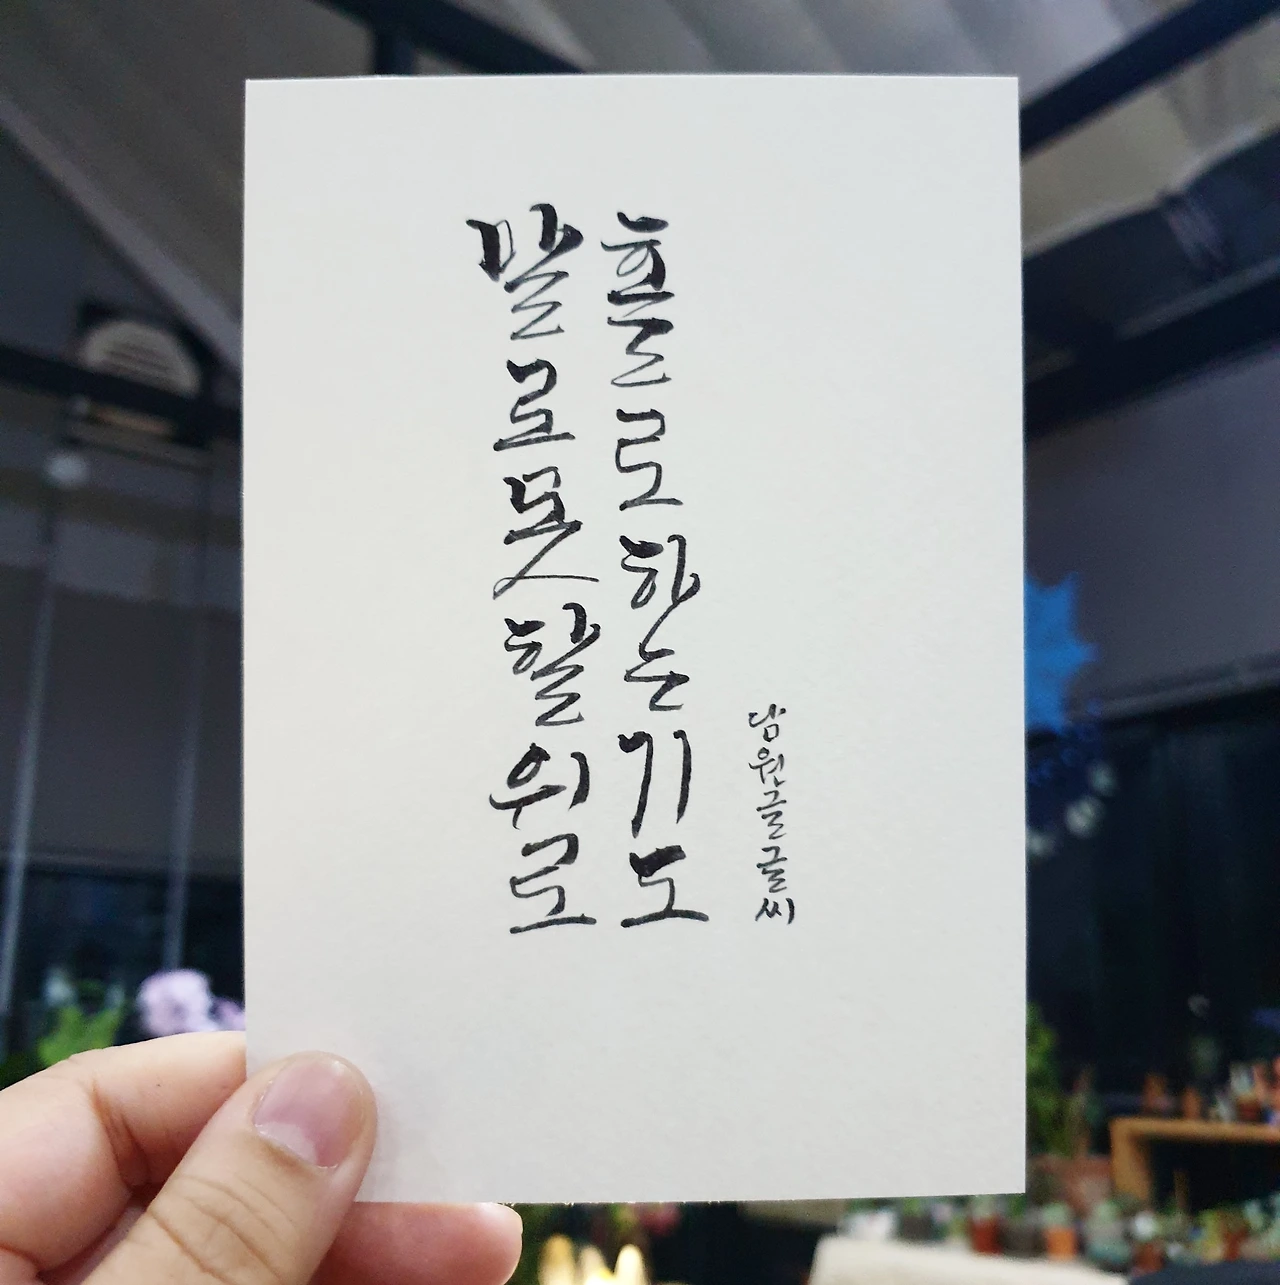 말로못할위로
홀로하는기도
담원글글씨